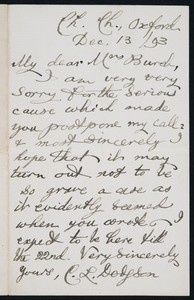 Ch. Ch., Oxford
Dec. 13/93
My dear Mrs Burch,
I am very very
sorry for the serious
cause which made
you postpone my call:
& most sincerely I
hope that it may
turn out not to be
so grave a case as
it evidently seemed
when you wrote. I
expect to be here till
the 22nd. Very sincerely
yours, C. L. Dodgson